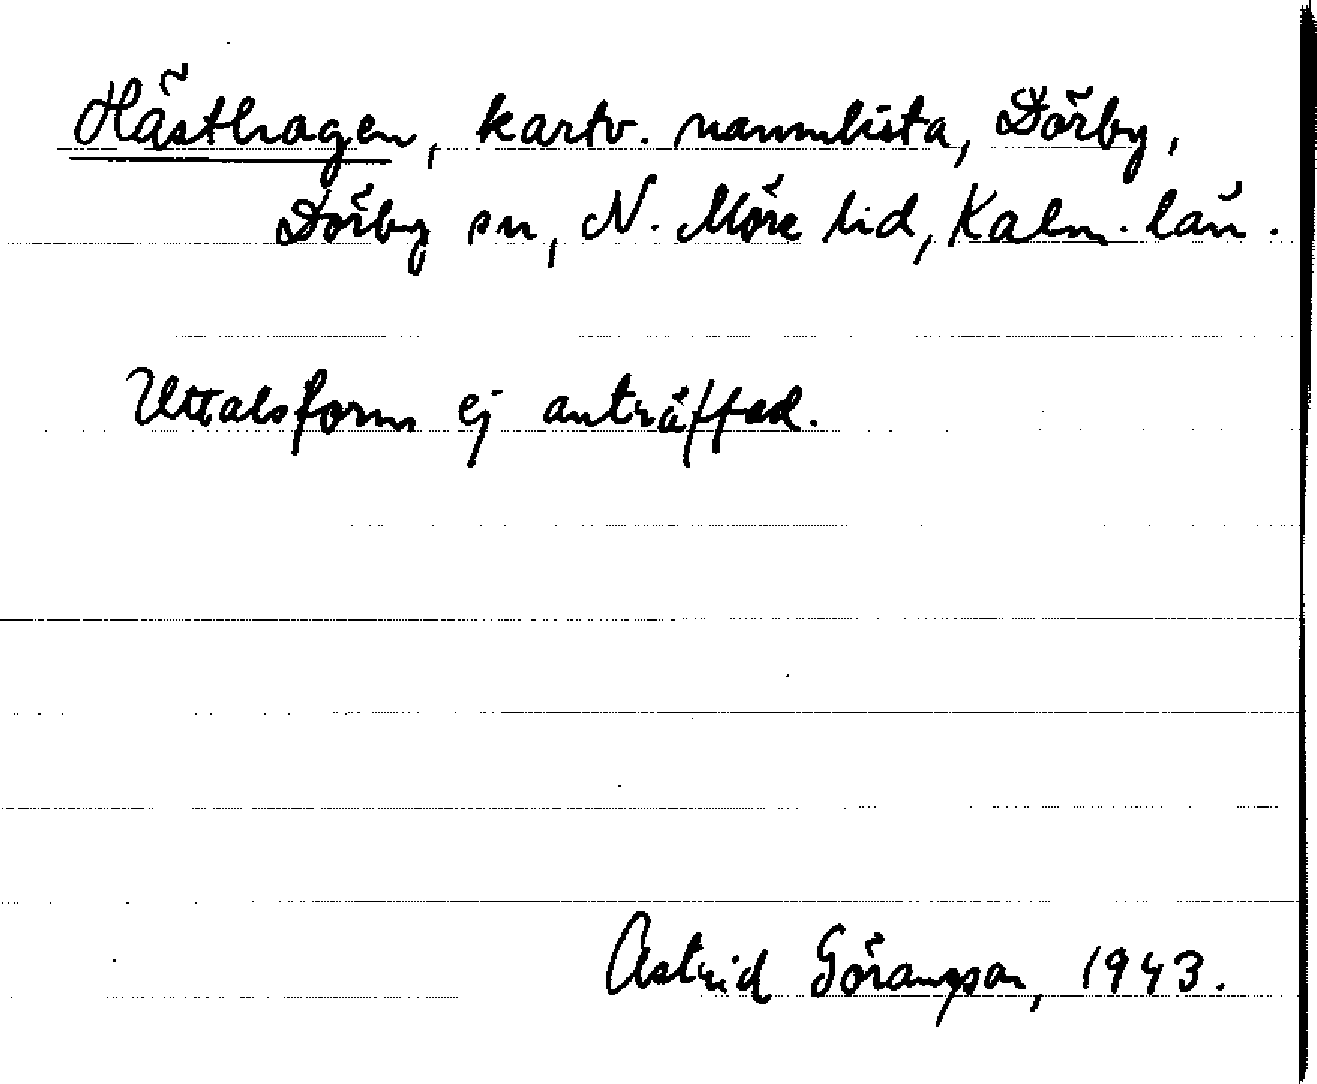 Hästhagen, kartv. namnlista, Dörby,
Dörby sn, N. Möre hd, Kalm. län.
Uttalsform ej anträffad.
Astrid Göransson, 1943.